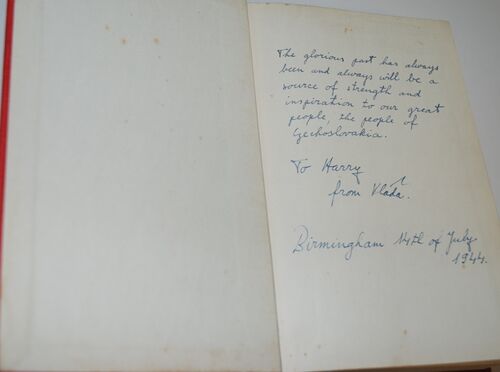 The glorious past has always
been and always will be a
source of strength and
inspiration to our great
people, the people of
Czechoslovakia.
To Harry
from Vláďa.
Birmingham 14th of July
1944.